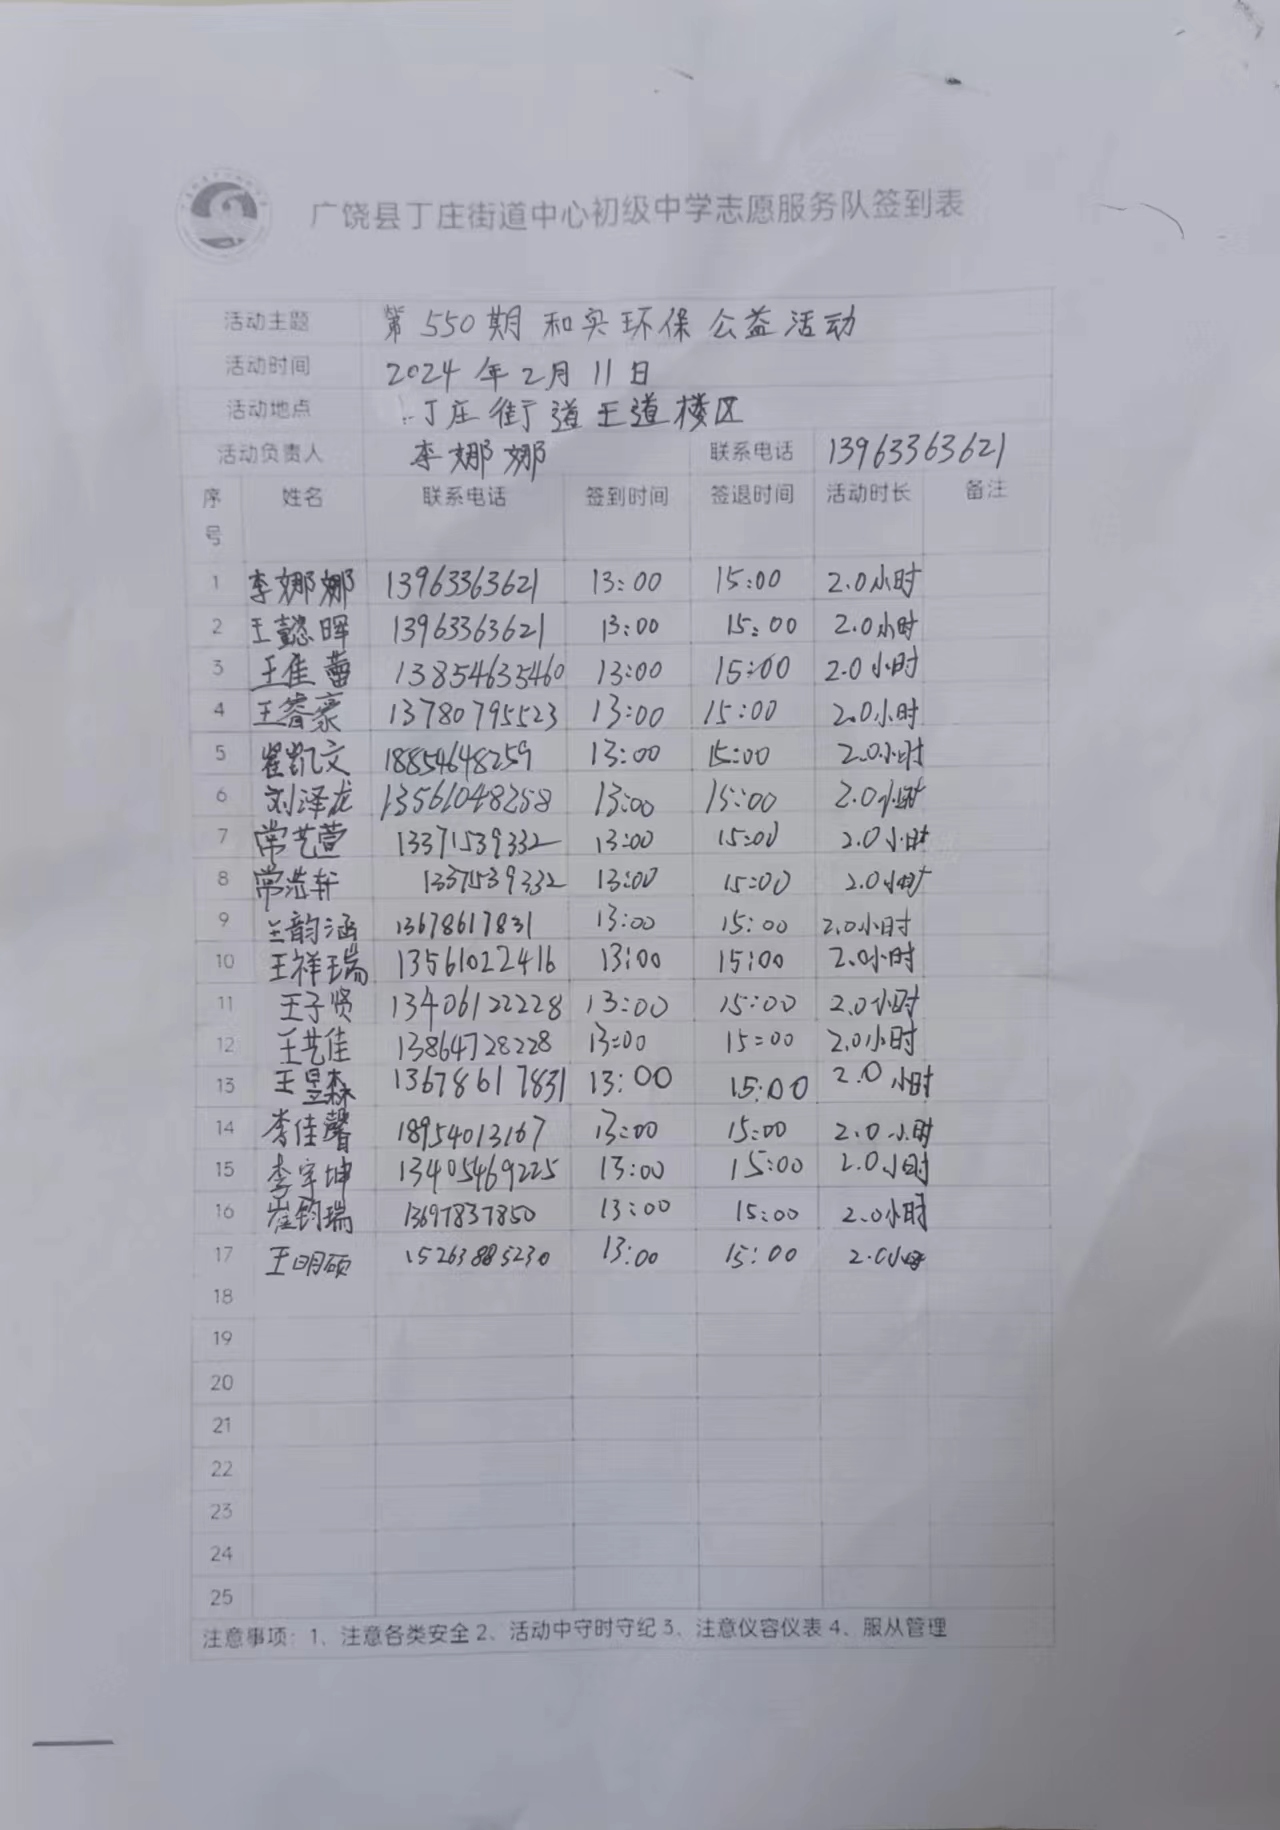 广饶县丁庄街道中心初级中学志愿服务队签到表
活动主题 第550期和实环保公益活动
活动时间 2024年2月11日
活动地点 丁庄街道王道楼区
活动负责人 李娜娜 联系电话 13963363621
序号 姓名 联系电话 签到时间 签退时间 活动时长 备注
1 李娜娜 13963363621 13:00 15:00 2.0小时
2 王懿晖 13963363621 13:00 15:00 2.0小时
3 王佳蕾 13854635460 13:00 15:00 2.0小时
4 王睿豪 13780795523 13:00 15:00 2.0小时
5 崔凯文 18854648259 13:00 15:00 2.0小时
6 刘泽龙 13561048258 13:00 15:00 2.0小时
7 常艺萱 13371539332 13:00 15:00 2.0小时
8 常浩轩 1337539332 13:00 15:00 2.0小时
9 王韵涵 13678617831 13:00 15:00 2.0小时
10 王祥瑞 13561022416 13:00 15:00 2.0小时
11 王子贤 13406122228 13:00 15:00 2.0小时
12 王艺佳 13864728228 13:00 15:00 2.0小时
13 王昱森 13678617831 13:00 15:00 2.0小时
14 李佳馨 18954013167 13:00 15:00 2.0小时
15 李宇坤 13405469225 13:00 15:00 2.0小时
16 崔钧瑞 13697837850 13:00 15:00 2.0小时
17 王明硕 15263885230 13:00 15:00 2.0小时
18
19
20
21
22
23
24
25
注意事项：1、注意各类安全 2、活动中守时守纪 3、注意仪容仪表 4、服从管理